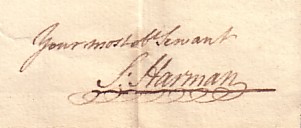 Your most obt. Servant
S: Harman